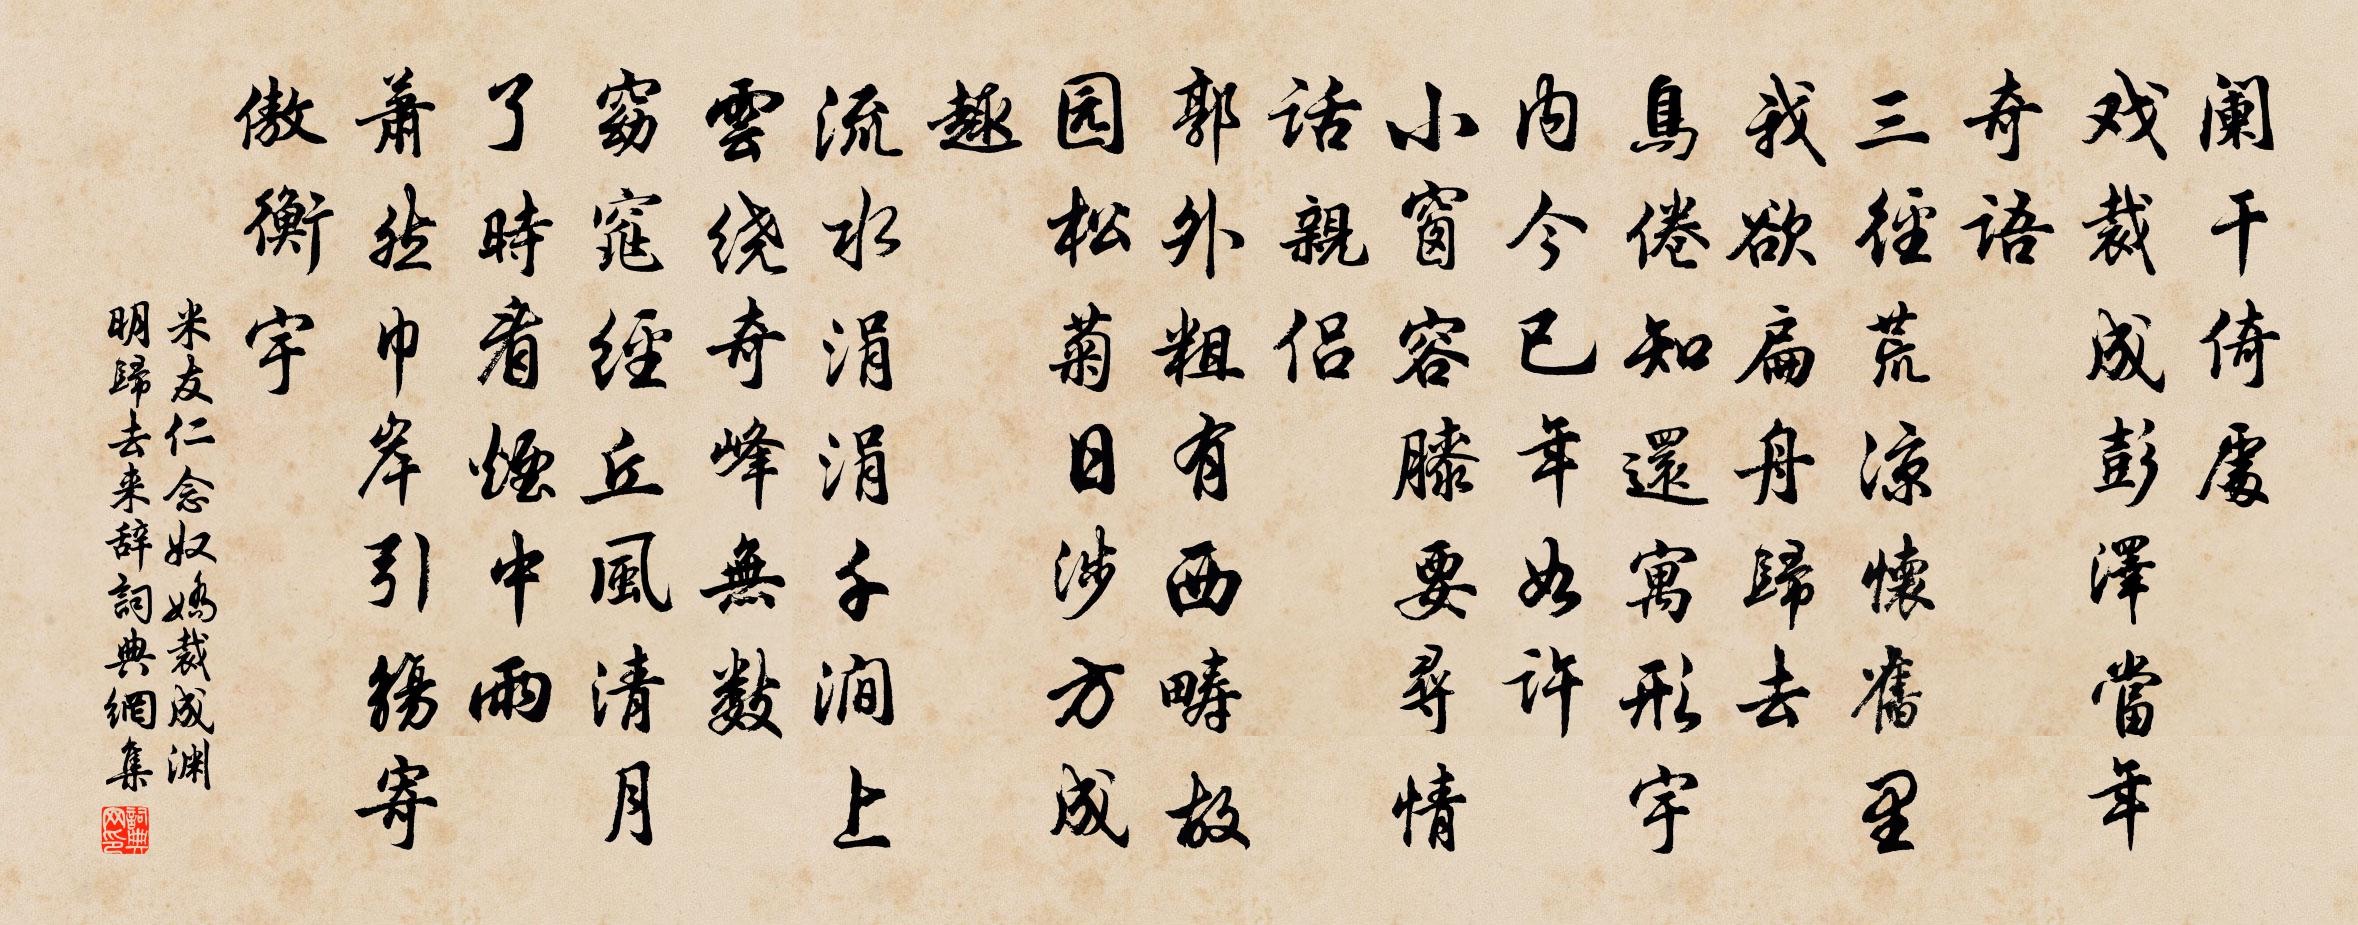 阑干倚處
戏裁成彭澤當年
奇语
三徑荒涼懷舊里
我欲扁舟歸去
鳥倦知還寓形宇
内今已年如许
小窗容膝要尋情
话親侣
郭外粗有西畴故
园松菊日涉方成
趣
流水涓涓千澗上
雲绕奇峰無数
窈窕經丘風清月
了時看煙中雨
萧然巾岸引觞寄
傲衡宇
米友仁念奴嬌裁成渊
明歸去来辞詞典網集
詞典網印